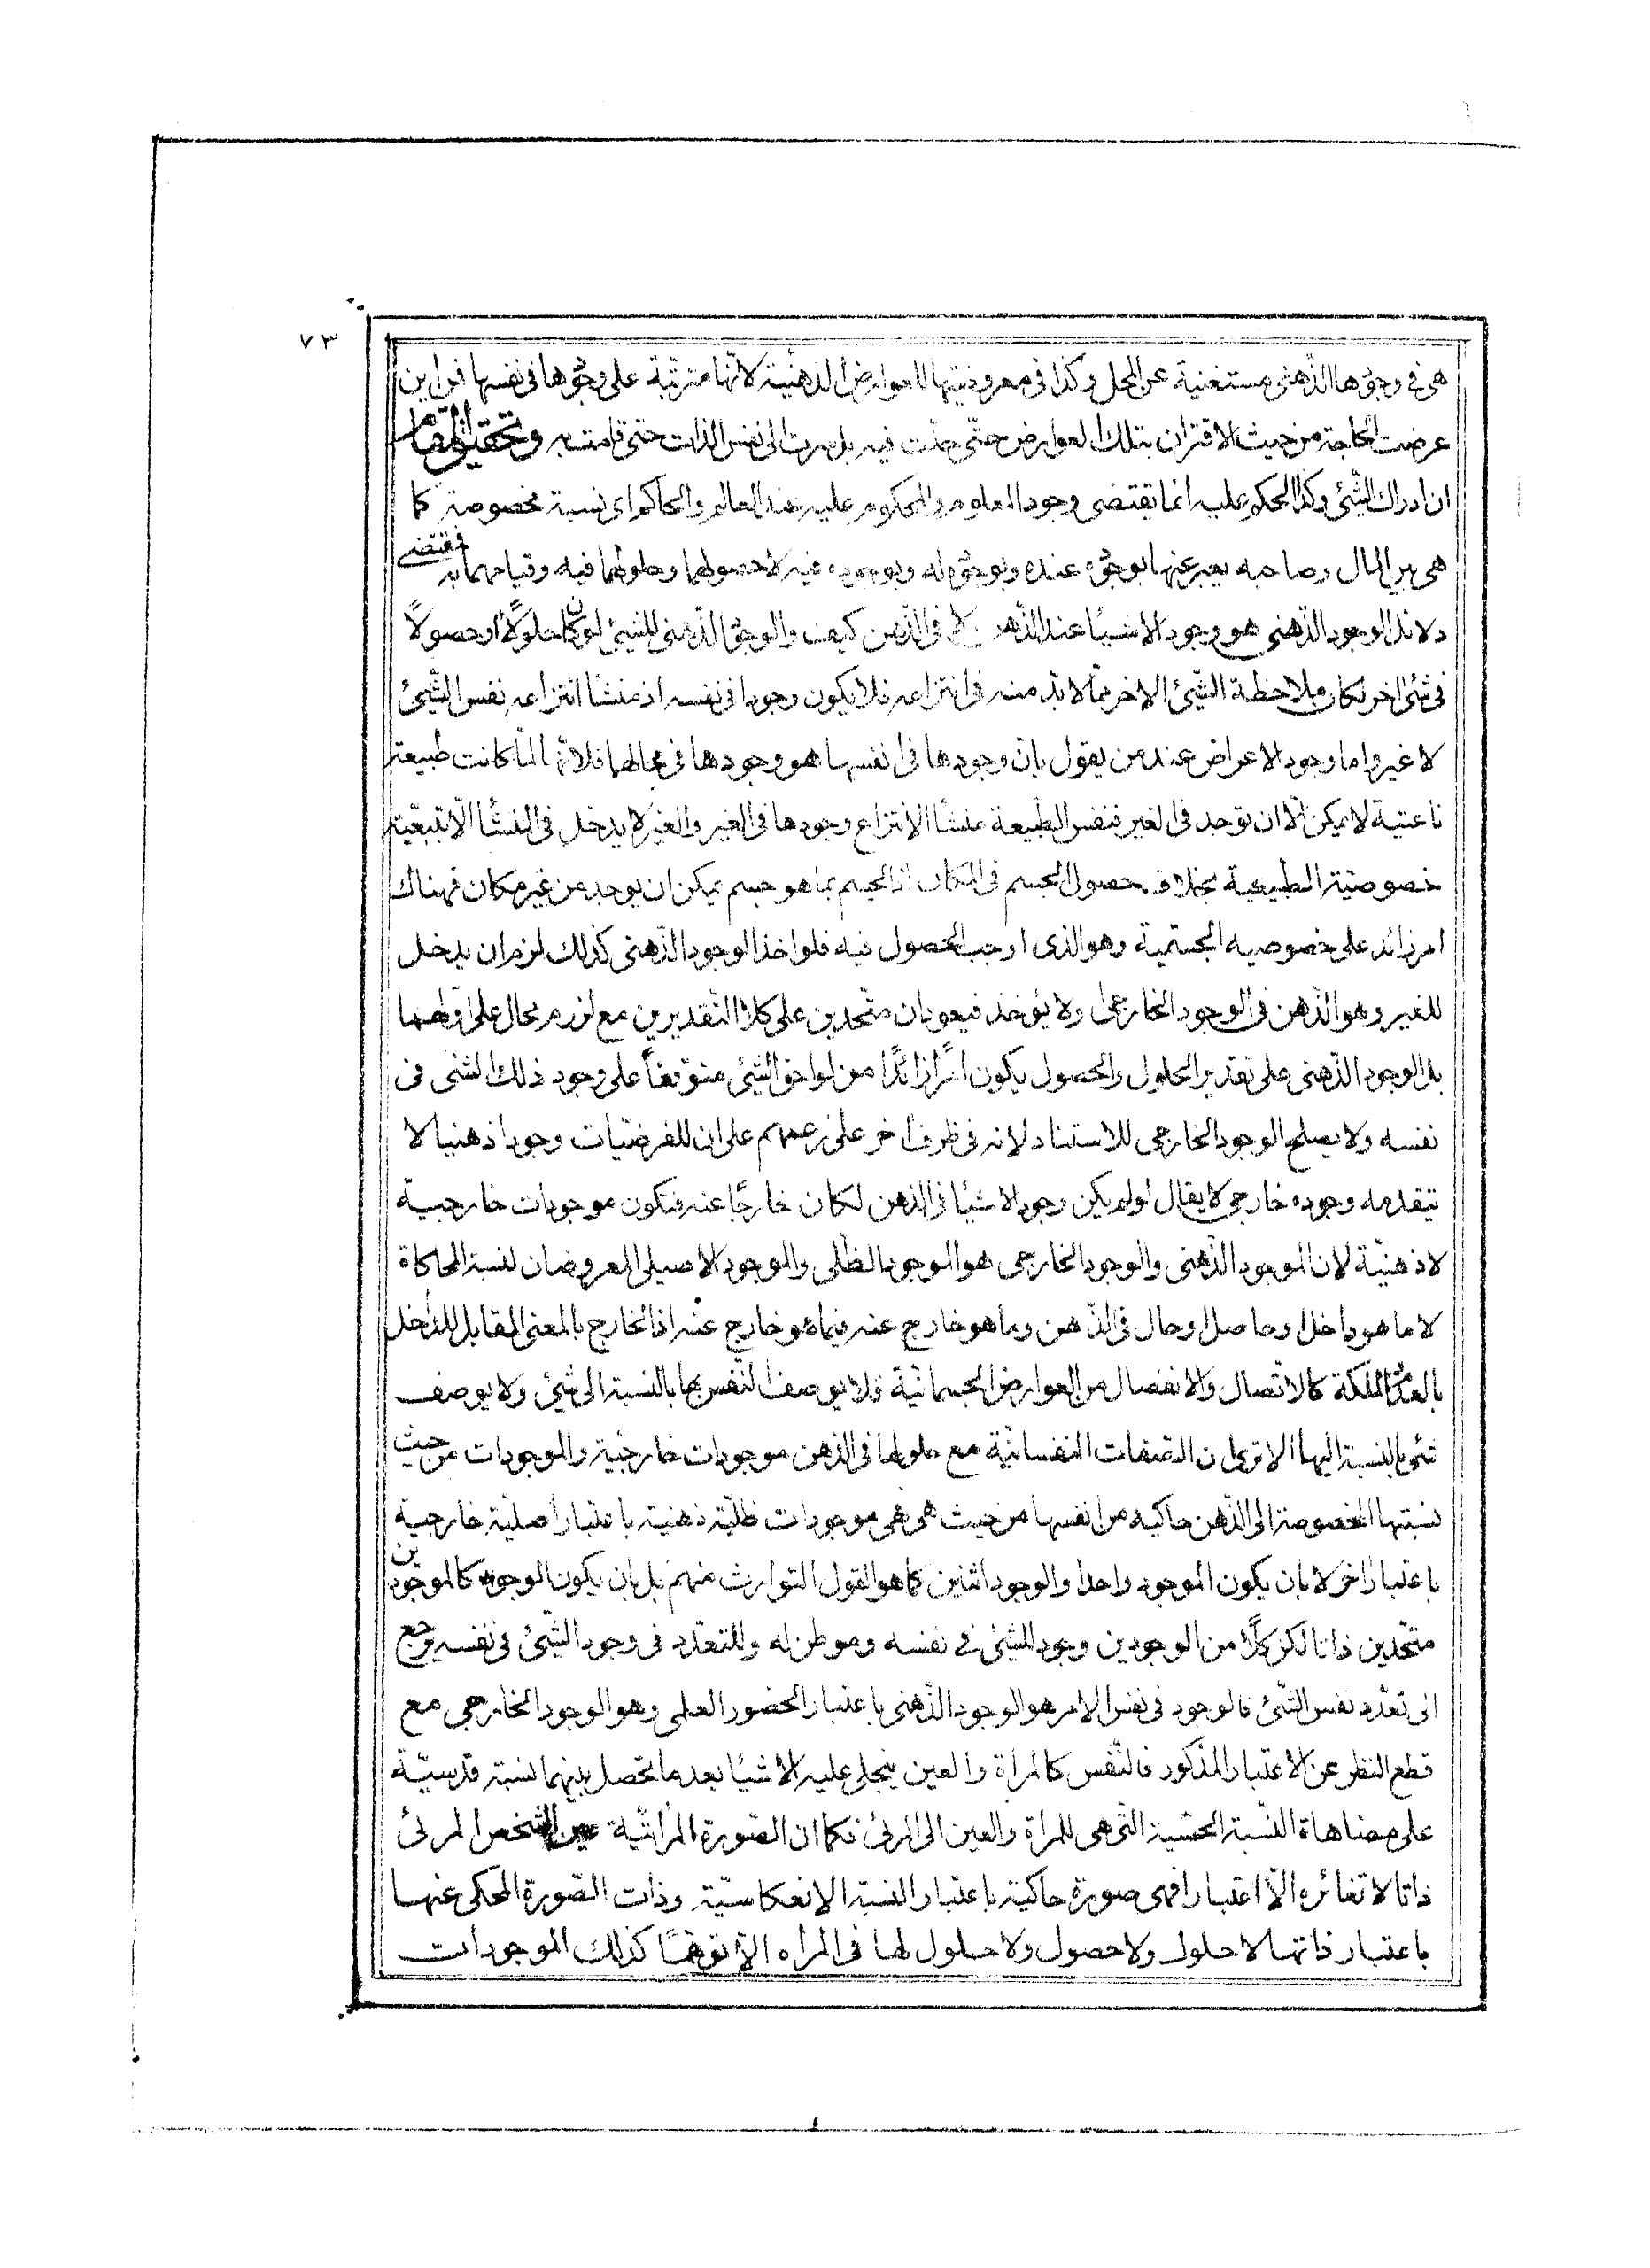 ٧٣
هى فى وجودها الذّهنى مستغنية عن المحل وكذا فى معروضيتها للعوارض الذهنية لانّها مترتبة على وجودها فى نفسها فمن اين
عرضت الحاجة من حيث الاقتران بتلك العوارض حتّى حلّت فيه بل سرت الى نفس الذات حتى قامت به وتحقيق المقام
ان ادراك الشّئ وكذا الحكم عليه انما يقتضى وجود المعلوم والمحكوم عليه عند العالم والحاكم اى نسبة مخصوصة كما
هى بين المال وصاحبه يعبر عنها بوجوده عنده وبوجوده له وبوجوده فيه لا حصولهما وحلولهما فيه وقيامهما به فمقتضى
دلائل الوجود الذّهنى هو وجود الاشيا عند الذّهن لا فى الذّهن كيف والوجود الذّهنى للشئ لو كان حلولًا او حصولًا
فى شئ اخر لكان ملاحظة الشّئ الاخر ممّا لابدّ منه فى انتزاعه فلا يكون وجودا فى نفسه اذ منشا انتزاعه نفس الشّئ
لا غير واما وجود الاعراض عند من يقول بانّ وجودها فى انفسها هو وجودها فى محالها فلانّها لمّا كانت طبيعته
ناعتية لا يمكن الّا ان توجد فى الغير فنفس الطّبيعة منشا الانتزاع وجودها فى الغير والغير لا يدخل فى المنشا الّا بتبعيّة
خصوصيّة الطبيعية بخلاف حصول الجسم فى المكان اذ الجسم بما هو جسم يمكن ان يوجد من غير مكان فهناك
امر زائد على خصوصيه الجسمية وهو الذى اوجب الحصول فيه فلو اخذ الوجود الذّهنى كذلك لزم ان يدخل
للغير وهو الذّهن فى الوجود الخارجى ولا يؤخذ فيعودان متّحدين على كلا التّقديرين مع لزوم محال على اولهما
بل الوجود الذّهنى على تقدير الحلول والحصول يكون امرًا زائدًا من لواحق الشّئ متوقفًا على وجود ذلك الشئ فى
نفسه ولا يصلح الوجود الخارجى للاستناد لانه فى ظرف اخر على زعمهم على ان للفرضيّات وجودا ذهنيا لا
يتقدمه وجوده خارجى لا يقال لو لم يكن وجود الاشيا فى الذهن لكان خارجًا عنه فتكون موجودات خارجية
لا ذهنيّة لان الموجود الذّهنى والوجود الخارجى هو الموجود الظّلى والموجود الاصيلى المعروضان لنسبة المحاكاة
لا ما هو داخل او حاصل او حال فى الذّهن وما هو خارج عنه فيما هو خارج عنه اذ الخارج بالمعنى المقابل للدّاخل
بالعدم والملكة كالاتّصال والانفصال من العوارض الجسمانيّة فلا يوصف النّفس بها بالنسبة الى شئ ولا يوصف
شئ بالنسبة اليها الا ترى ان الصّفات النفسانيّة مع حلولها فى الذهن موجودات خارجيّة والموجودات من حيث
نسبتها المخصوصة الى الذّهن حاكيه من انفسها من حيث هى هى موجودات ظليّة ذهنية باعتبار اصليّة خارجيّة
باعتبار اخر لا بان يكون الموجود واحدا والوجود اثنين كما هو القول المتوارث منهم بل بان يكون الوجود كالموجودين
متحدين ذاتا لكن كلّا من الوجودين وجود للشئ فى نفسه وموطن له والتعدّد فى وجود الشّئ فى نفسه يرجع
الى تعدّد نفس الشّئ فالوجود فى نفس الامر هو الوجود الذّهنى باعتبار الحضور العلمى وهو الوجود الخارجى مع
قطع النظر عن الاعتبار المذكور فالنّفس كالمرأة والعين ينجلى عليه الاشيا بعد ما تحصل بينهما نسبة قدسيّة
على مضاهاة النّسبة الحسّية التى هى للمراة والعين الى المرئى فكما ان الصّورة المرأتيّة عين الشخص المرئى
ذاتا لا تغائره الّا اعتبارا فهى صورة حاكية باعتبار النسبة الانعكاسيّة وذات الصّورة المحكى عنها
باعتبار ذاتها لا حلول ولا حصول ولا حلول لها فى المراه الّا توهّمًا كذلك الموجودات